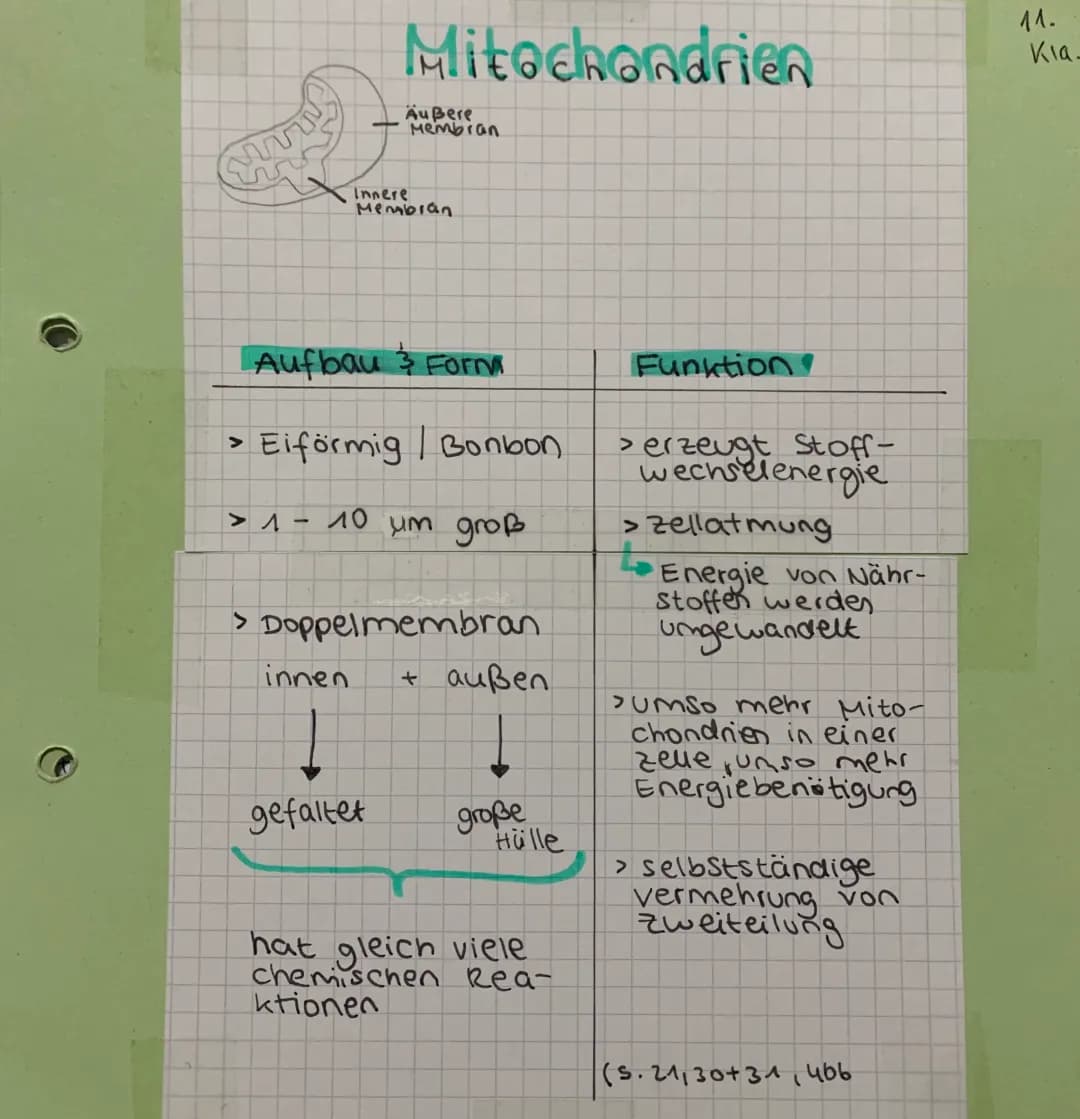 11.
Kla.
Mitochondrien
Äußere
Membran
Innere
Membran
Aufbau & Form
> Eiförmig | Bonbon
> 1 - 10 µm groß
> Doppelmembran
innen + außen
gefaltet
große
Hülle
hat gleich viele
chemischen Rea-
ktionen
Funktion
> erzeugt Stoff-
wechselenergie
> Zellatmung
Energie von Nähr-
stoffen werden
umgewandelt
> umso mehr Mito-
chondrien in einer
Zelle, umso mehr
Energiebenötigung
> selbstständige
vermehrung von
zweiteilung
(S. 21, 30+31, 466